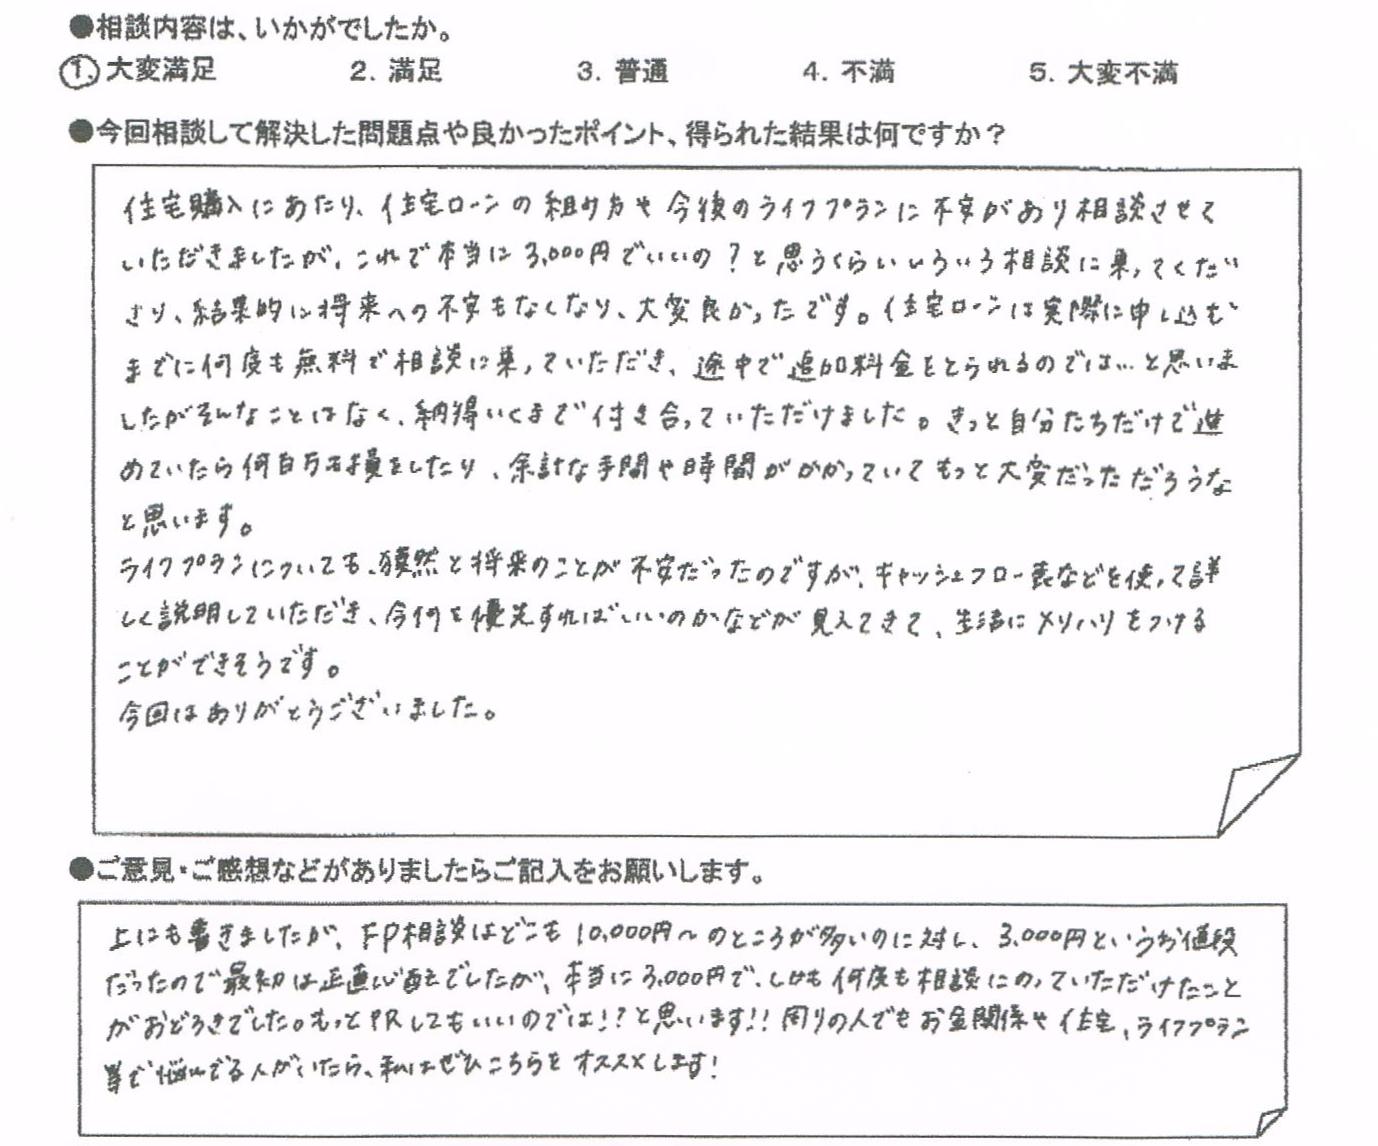 ●相談内容は、いかがでしたか。
1. 大変満足 2. 満足 3. 普通 4. 不満 5. 大変不満
●今回相談して解決した問題点や良かったポイント、得られた結果は何ですか?
住宅購入にあたり、住宅ローンの組み方や今後のライフプランに不安があり相談させて
いただきましたが、これで本当に3,000円でいいの?と思うくらいいろいろ相談に乗ってくだ
さり、結果的に将来への不安もなくなり、大変良かったです。住宅ローンは実際に申し込む
までに何度も無料で相談に乗っていただき、途中で追加料金をとられるのでは…と思いま
したがそんなことはなく、納得いくまで付き合っていただけました。きっと自分たちだけで進
めていたら何百万も損をしたり、余計な手間や時間がかかっていてもっと大変だっただろうな
と思います。
ライフプランについても、漠然と将来のことが不安だったのですが、キャッシュフロー表などを使って詳
しく説明していただき、今何を優先すればいいのかなどが見えてきて、生活にメリハリをつける
ことができそうです。
今回はありがとうございました。
●ご意見・ご感想などがありましたらご記入をお願いします。
上にも書きましたが、FP相談はどこも10,000円～のところが多いのに対し、3,000円というお値段
だったので最初は正直心配でしたが、本当に3,000円で、しかも何度も相談にのっていただけたこと
がおどろきでした。もっとPRしてもいいのでは!?と思います!!周りの人でもお金関係や住宅、ライフプラン
等で悩んでる人がいたら、私はぜひこちらをオススメします!